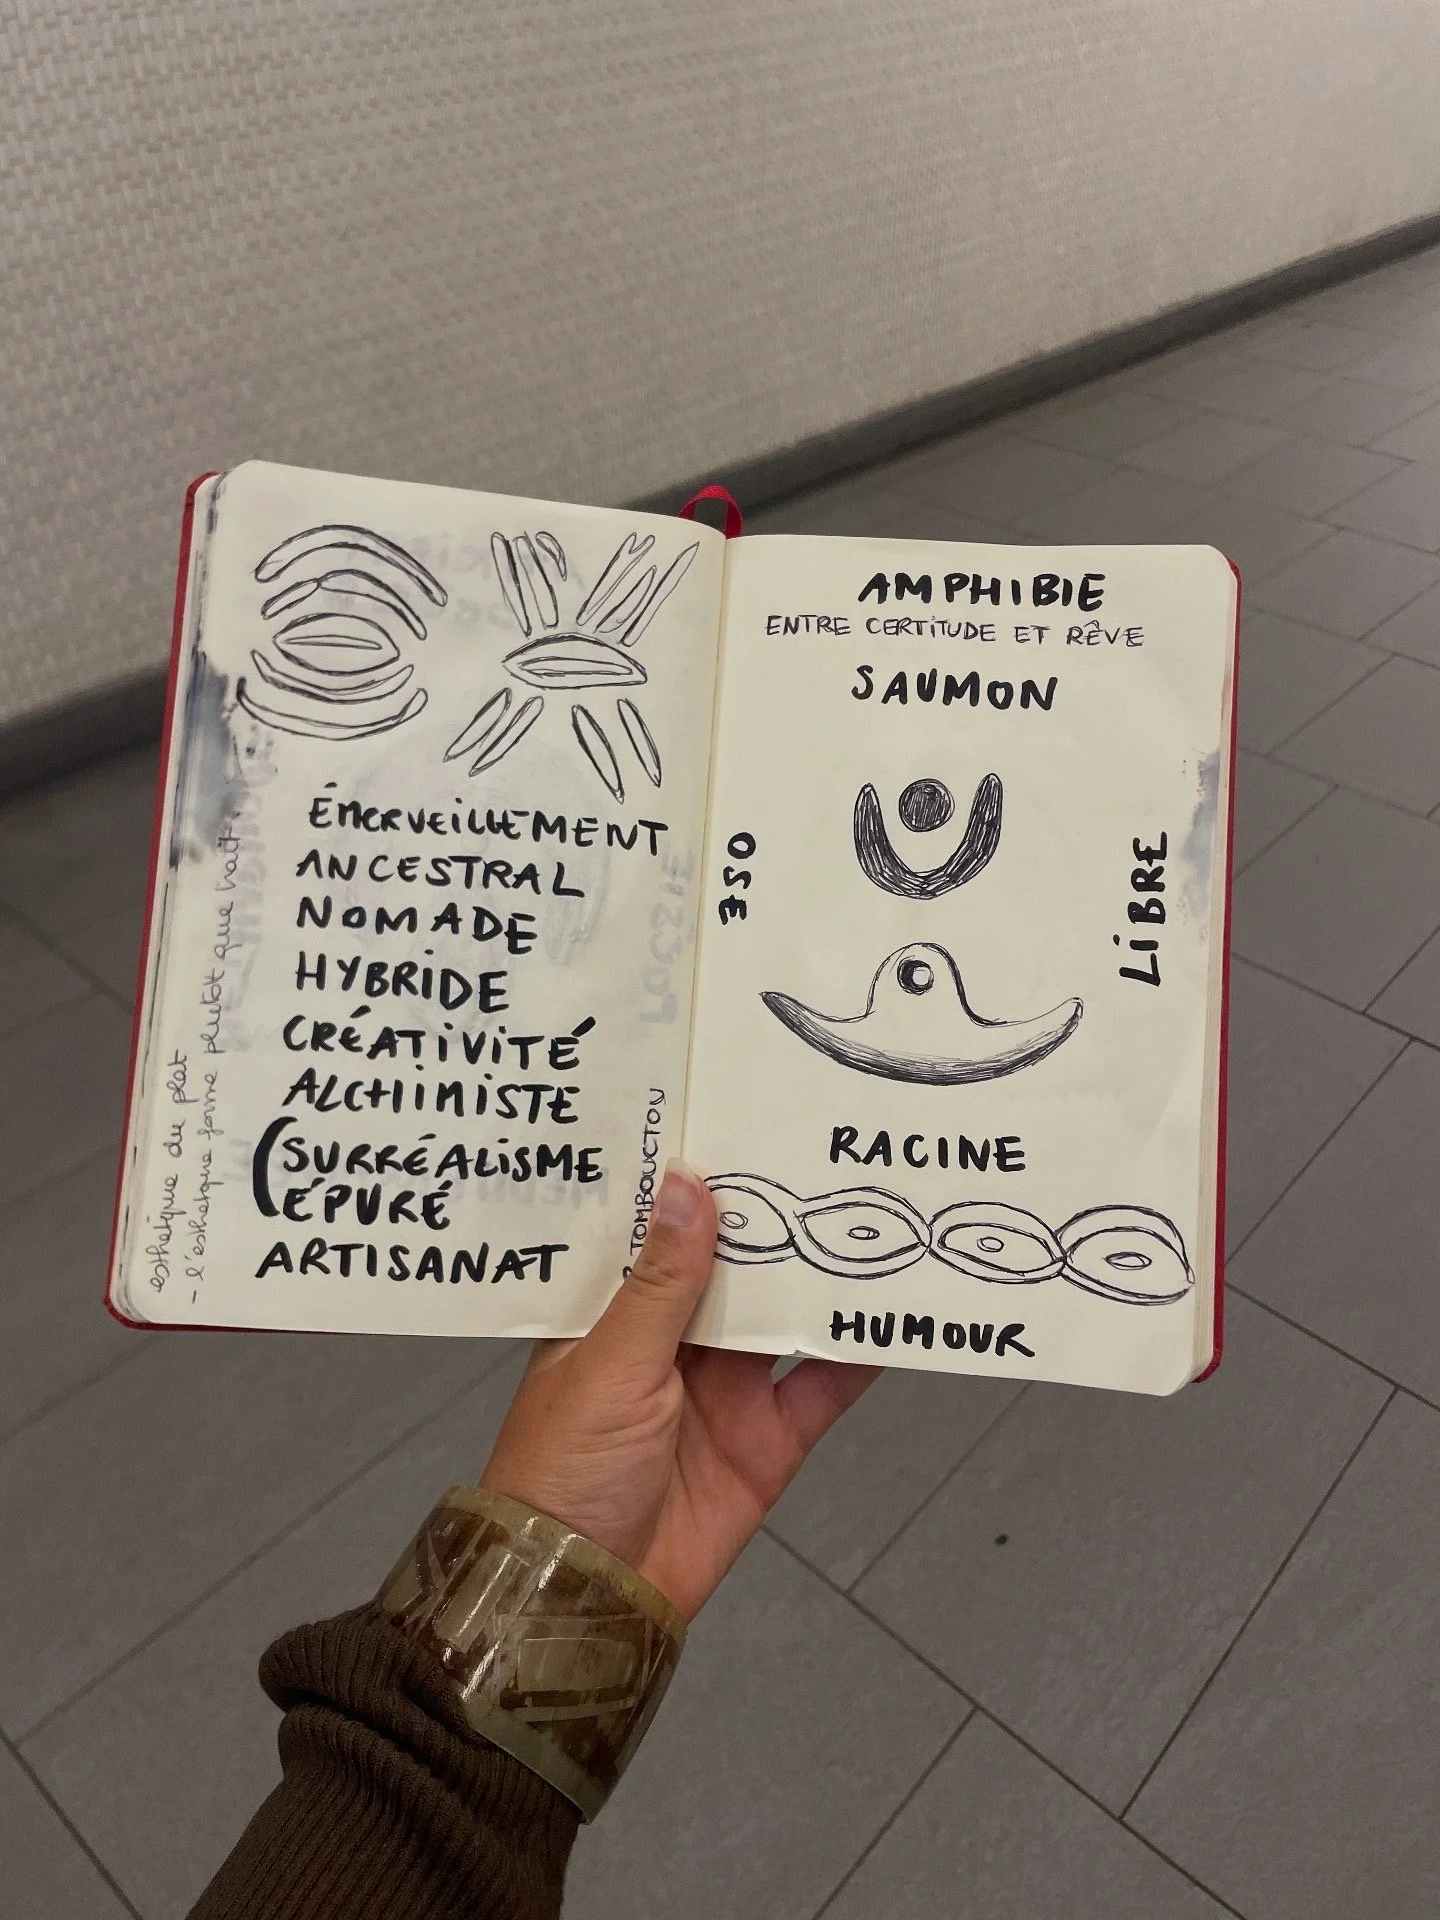 ÉMERVEILLEMENT
ANCESTRAL
NOMADE
HYBRIDE
CRÉATIVITÉ
ALCHIMISTE
(SURRÉALISME
ÉPURÉ
ARTISANAT
esthétique du plat
- l'esthétique forme plutôt que trait
TOMBOUCTOU
AMPHIBIE
ENTRE CERTITUDE ET RÊVE
SAUMON
OSE
LIBRE
RACINE
HUMOUR